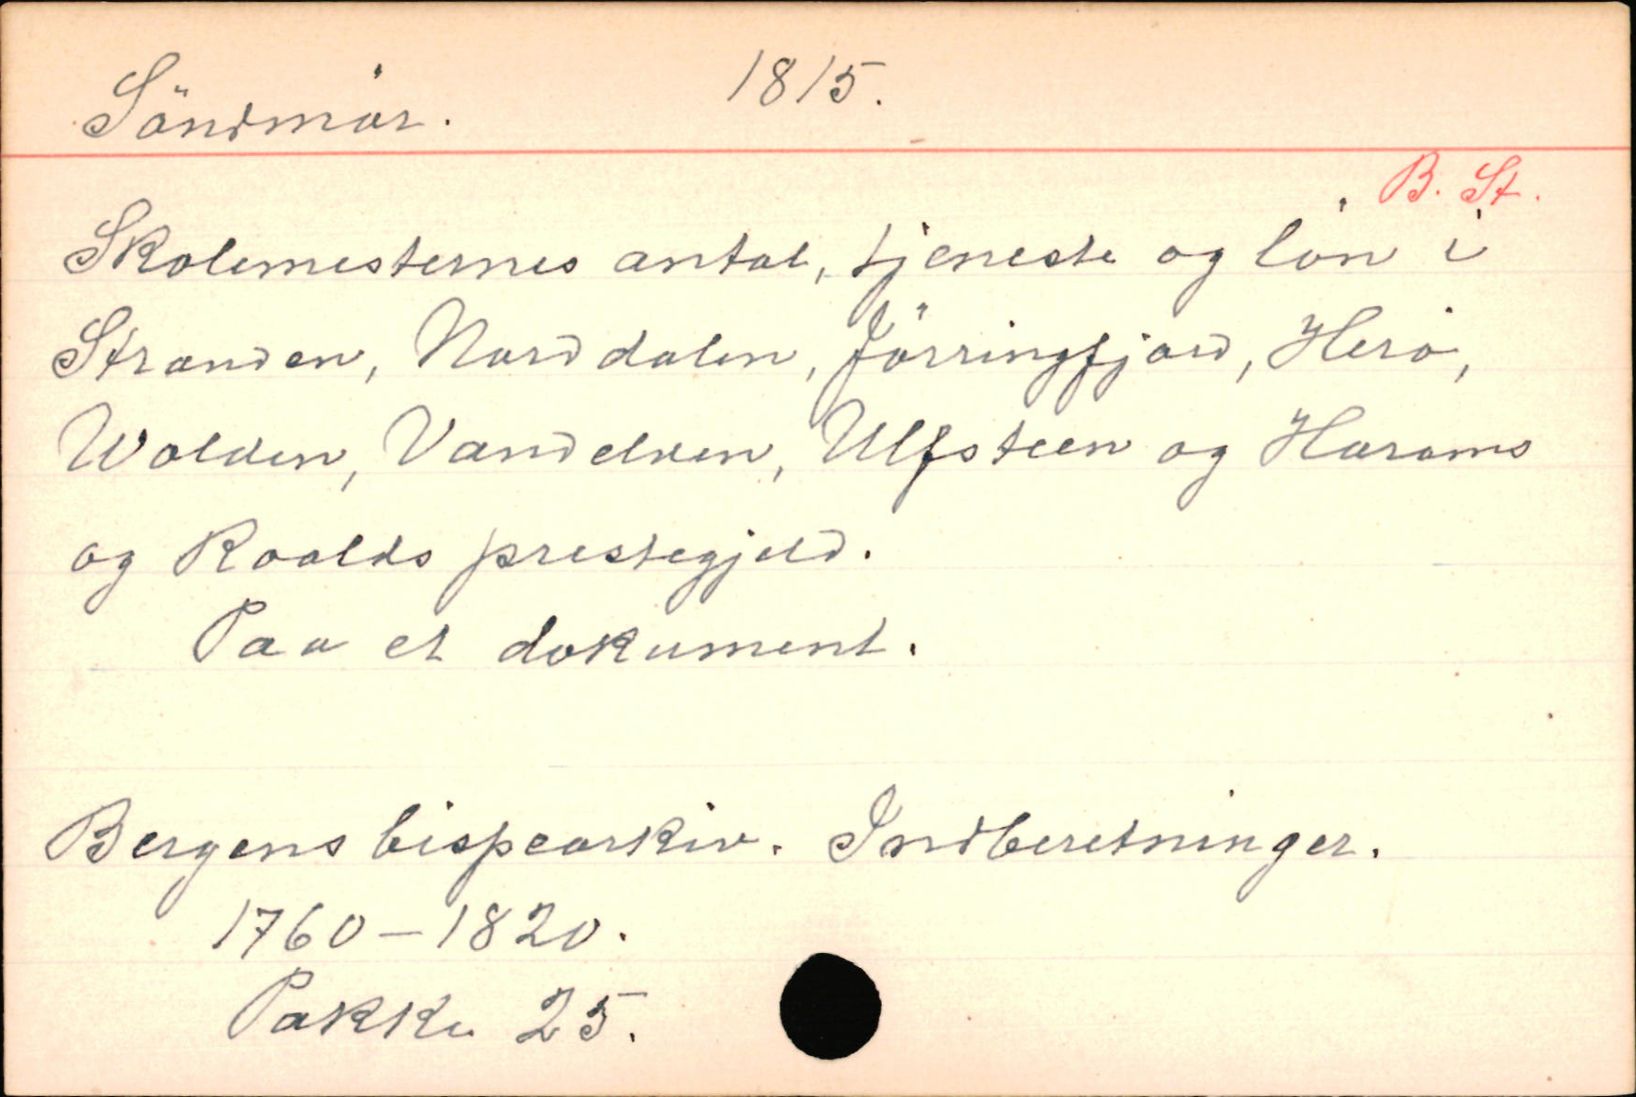 Söndmör. 1815.
B. St.
Skolemesternes antal, tjeneste og lön i
Stranden, Norddalen, Jörringfjord, Herö,
Wolden, Vandelven, Ulfsteen og Harams
og Roalds prestegjeld.
Paa et dokument.
Bergens bispearkiv. Indberetninger.
1760-1820.
Pakke 25.